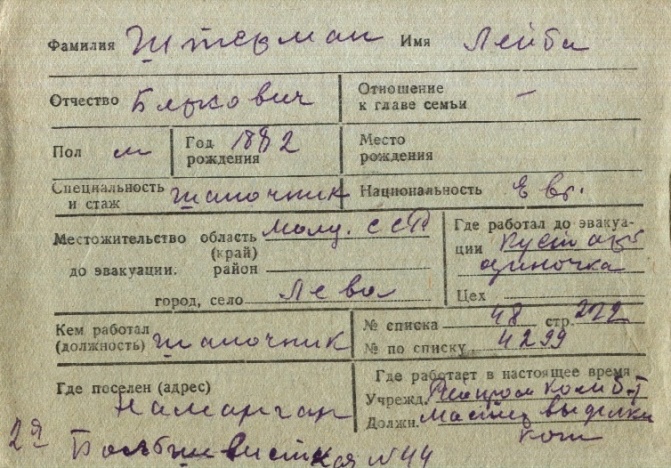 Фамилия Штерман Имя Лейба
Отчество Беркович Отношение к главе семьи –
Пол м Год рождения 1882 Место рождения
Специальность и стаж шапочник Национальность Евр.
Местожительство до эвакуации. область (край) Молд. ССР
район
город, село Лева
Где работал до эвакуации Кустарь
одиночка
Цех
Кем работал (должность) шапочник № списка 48 стр. 272
№ по списку 4299
Где поселен (адрес) Где работает в настоящее время
Наманган Учрежд.
Должн. Мастер выделки
кож
2я Большевистская №44